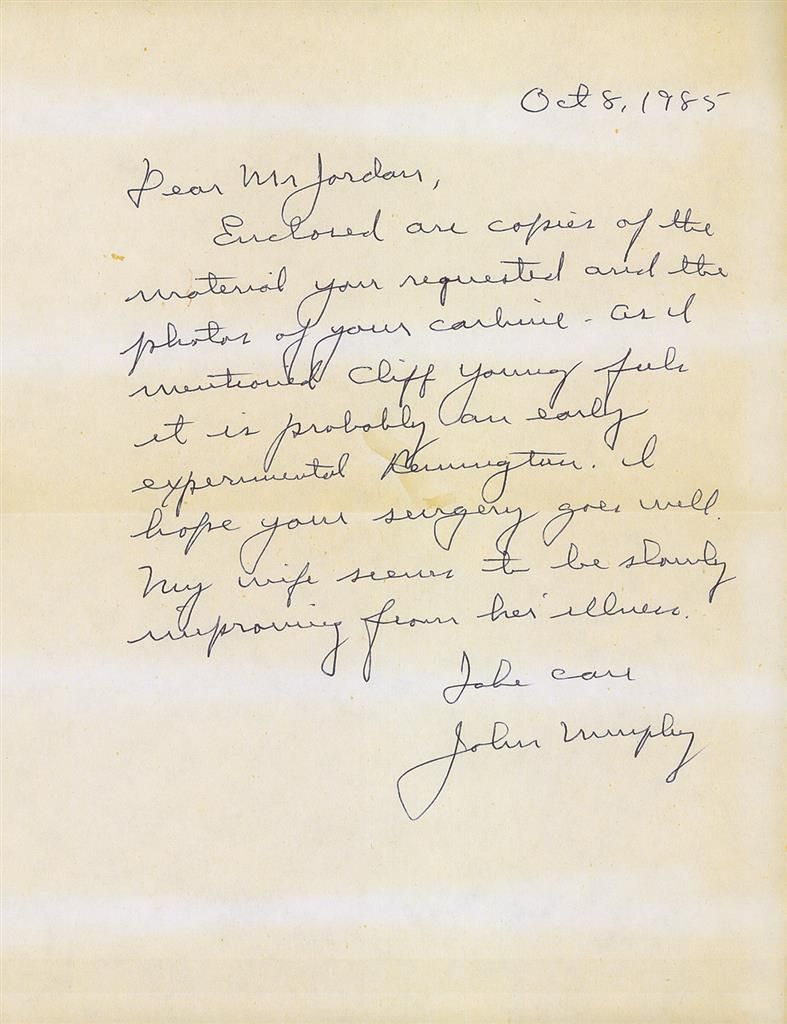 Oct 8, 1985
Dear Mr Jordan,
Enclosed are copies of the
material you requested and the
photos of your carbine - as I
mentioned Cliff Young feels
it is probably an early
experimental Remington. I
hope your surgery goes well.
My wife seems to be slowly
improving from her illness.
Take care
John Murphy